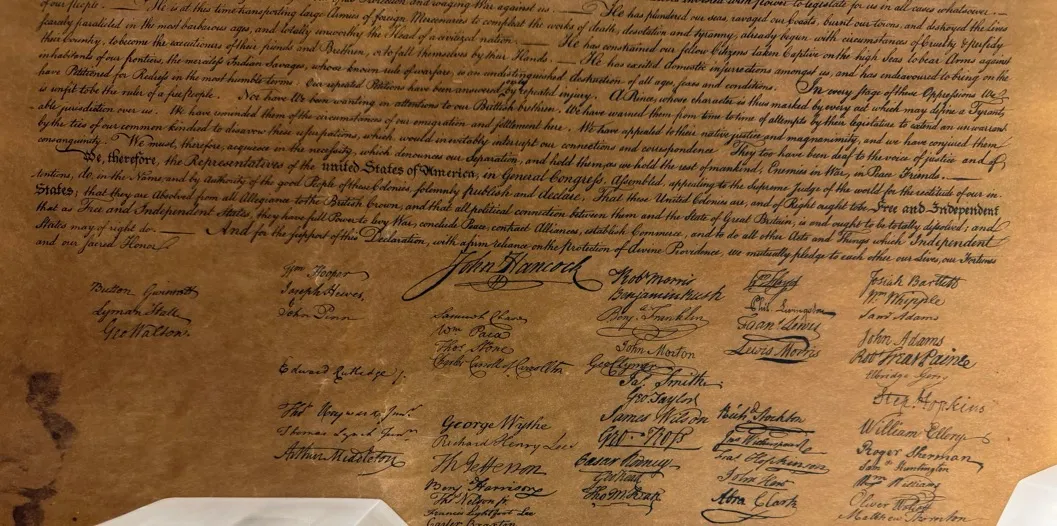 Protection and waging War against us. — He has plundered our seas, ravaged our Coasts, burnt our towns, and destroyed the lives
of our people. — He is at this time transporting large Armies of foreign Mercenaries to compleat the works of death, desolation and tyranny, already begun with circumstances of Cruelty & perfidy
scarcely paralleled in the most barbarous ages, and totally unworthy the Head of a civilized nation. — He has constrained our fellow Citizens taken Captive on the high Seas to bear Arms against
their Country, to become the executioners of their friends and Brethren, or to fall themselves by their Hands. — He has excited domestic insurrections amongst us, and has endeavoured to bring on the
inhabitants of our frontiers, the merciless Indian Savages, whose known rule of warfare, is an undistinguished destruction of all ages, sexes and conditions. In every stage of these Oppressions We
have Petitioned for Redress in the most humble terms: Our repeated Petitions have been answered only by repeated injury. A Prince, whose character is thus marked by every act which may define a Tyrant,
is unfit to be the ruler of a free people. Nor have We been wanting in attentions to our Brittish brethren. We have warned them from time to time of attempts by their legislature to extend an unwarrant
able jurisdiction over us. We have reminded them of the circumstances of our emigration and settlement here. We have appealed to their native justice and magnanimity, and we have conjured them
by the ties of our common kindred to disavow these usurpations, which, would inevitably interrupt our connections and correspondence. They too have been deaf to the voice of justice and of
consanguinity. We must, therefore, acquiesce in the necessity, which denounces our Separation, and hold them, as we hold the rest of mankind, Enemies in War, in Peace Friends. —
We, therefore, the Representatives of the united States of America, in General Congress, Assembled, appealing to the Supreme Judge of the world for the rectitude of our in
tentions, do, in the Name, and by Authority of the good People of these Colonies, solemnly publish and declare, That these United Colonies are, and of Right ought to be Free and Independent
States; that they are Absolved from all Allegiance to the British Crown, and that all political connection between them and the State of Great Britain, is and ought to be totally dissolved; and
that as Free and Independent States, they have full Power to levy War, conclude Peace, contract Alliances, establish Commerce, and to do all other Acts and Things which Independent
States may of right do. — And for the support of this Declaration, with a firm reliance on the protection of divine Providence, we mutually pledge to each other our Lives, our Fortunes
and our sacred Honor.
John Hancock
Button Gwinnett
Lyman Hall
Geo Walton.
Wm Hooper
Joseph Hewes,
John Penn
Edward Rutledge /.
Thos Heyward Junr.
Thomas Lynch Junr.
Arthur Middleton
Samuel Chase
Wm Paca
Thos Stone
Charles Carroll of Carrollton
George Wythe
Richard Henry Lee
Th Jefferson
Benj Harrison
Thos Nelson jr.
Francis Lightfoot Lee
Carter Braxton
Robt Morris
Benjamin Rush
Benj. Franklin
John Morton
Geo Clymer
Jas. Smith
Geo. Taylor
James Wilson
Geo. Ross
Caesar Rodney
Geo Read
Tho M:Kean
Wm Floyd
Phil. Livingston
Frans. Lewis
Lewis Morris
Richd Stockton
Jno Witherspoon
Fras. Hopkinson
John Hart
Abra Clark
Josiah Bartlett
Wm Whipple
Saml Adams
John Adams
Robt Treat Paine
Elbridge Gerry
Step. Hopkins
William Ellery
Roger Sherman
Saml Huntington
Wm Williams
Oliver Wolcott
Matthew Thornton